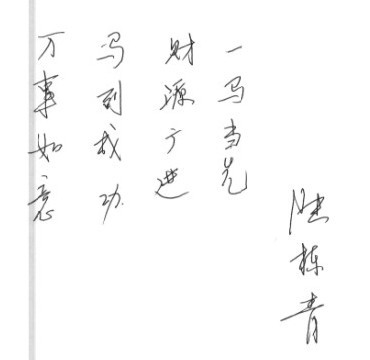 陆栋青
一马当先
财源广进
马到成功
万事如意